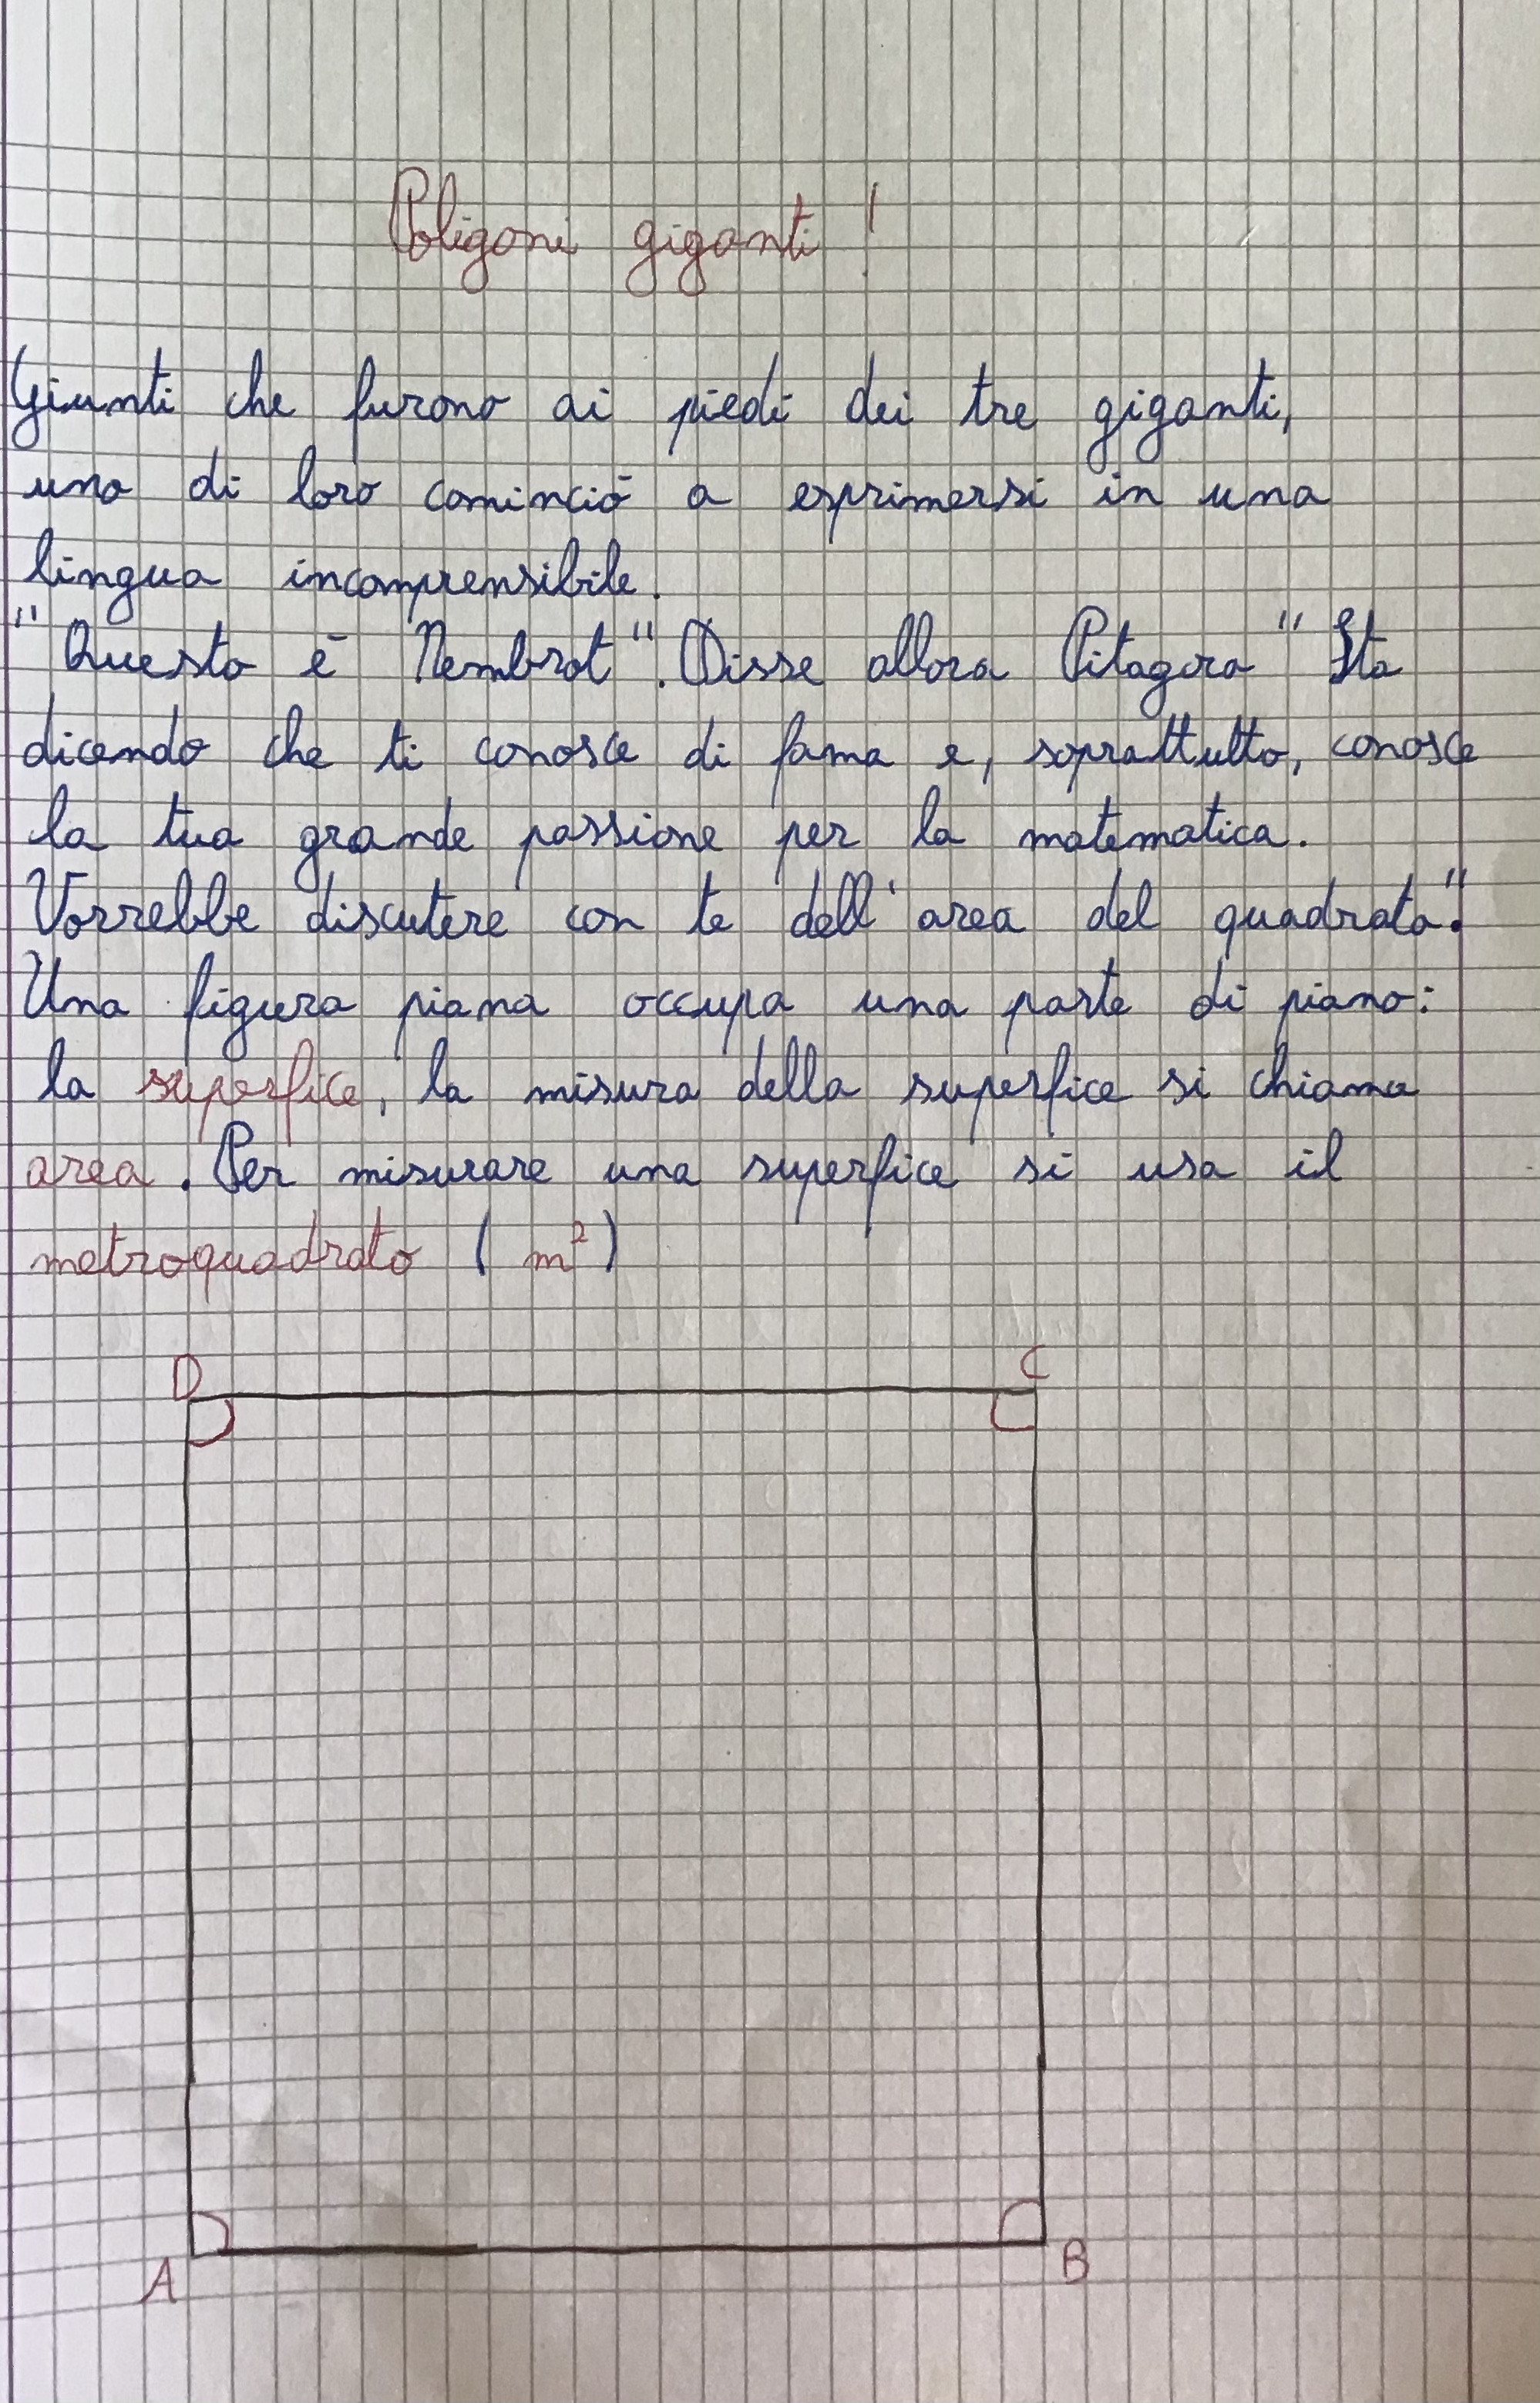 Poligoni giganti!
Giunti che furono ai piedi dei tre giganti,
uno di loro cominciò a esprimersi in una
lingua incomprensibile.
"Questo è Nembrot". Disse allora Pitagora "Sta
dicendo che ti conosce di fama e, soprattutto, conosce
la tua grande passione per la matematica.
Vorrebbe discutere con te dell'area del quadrato".
Una figura piana occupa una parte di piano:
la superfice, la misura della superfice si chiama
area. Per misurare una superfice si usa il
metroquadrato (m²)
D C
A B